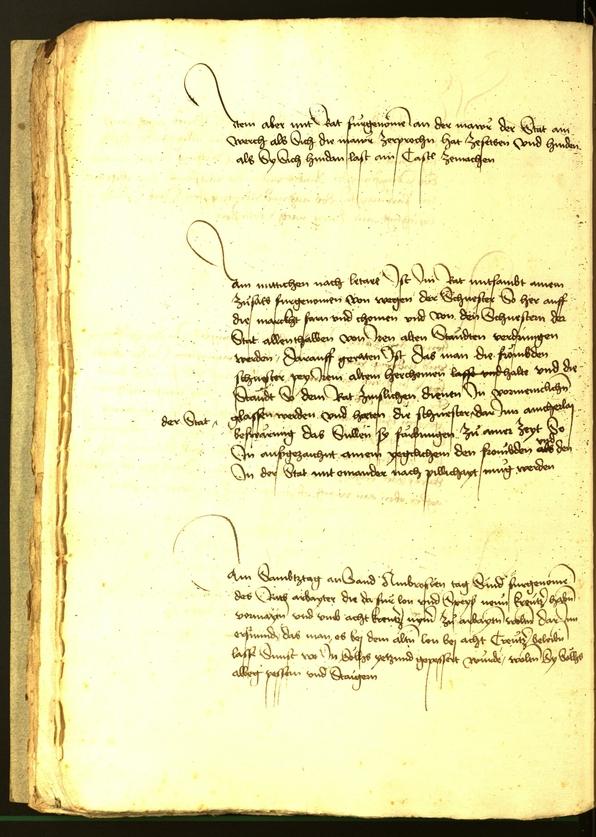 Item aber mit Rat furgenomen an der mawr der Stat ain
werch als Sich die mawr zerprochn hat zesetzen vnd hinden
als Sy Sich hindan last ain Castl zemachen
Am mitichen nach letare Ist Im Rat mitsambt ainem
zusatz furgenomen von wegen der Schuester So her auff
die marckht farn vnd chomen vnd von den Schuestern der
Stat allenthalben von Iren alten Standten verdrungen
werden Darauff geraten Ist das man die frombden
schuester pey Irem alten herchomen vnd halte vnd die
Standt So dem Rat zinslichen dienen In
glassen werden vnd hieten die schuester der Stat dar Inn aincherlay
beswarung das Sullen sy furbringen Zu ainer zeyt So
In aufgezaichnt ainem yegclichem den frombden vnd den
In der Stat mit einander nach pillichayt mug werden
Am Sambtztag an Sand Ambrosien tag Sind furgenomen
des arbayter die da fur lon vnd Speys newn kreutzer habn
vnd vmb acht kreutzer nymer zu arbayten welln dar Inn
erfunden das man es bey dem altn lon bey acht Creutzer beleibn
lasse Sunst wo In Solhs yetzund gepessert wurde wolten Sy Solhs
albeg pessern vnd Staigern